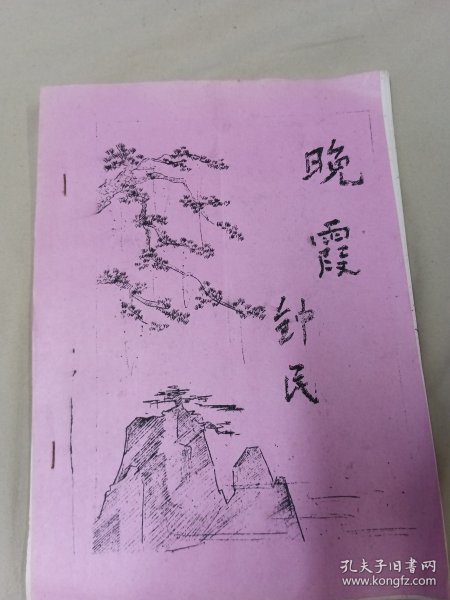 晚霞
钟民
孔夫子旧书网
www.kongfz.com